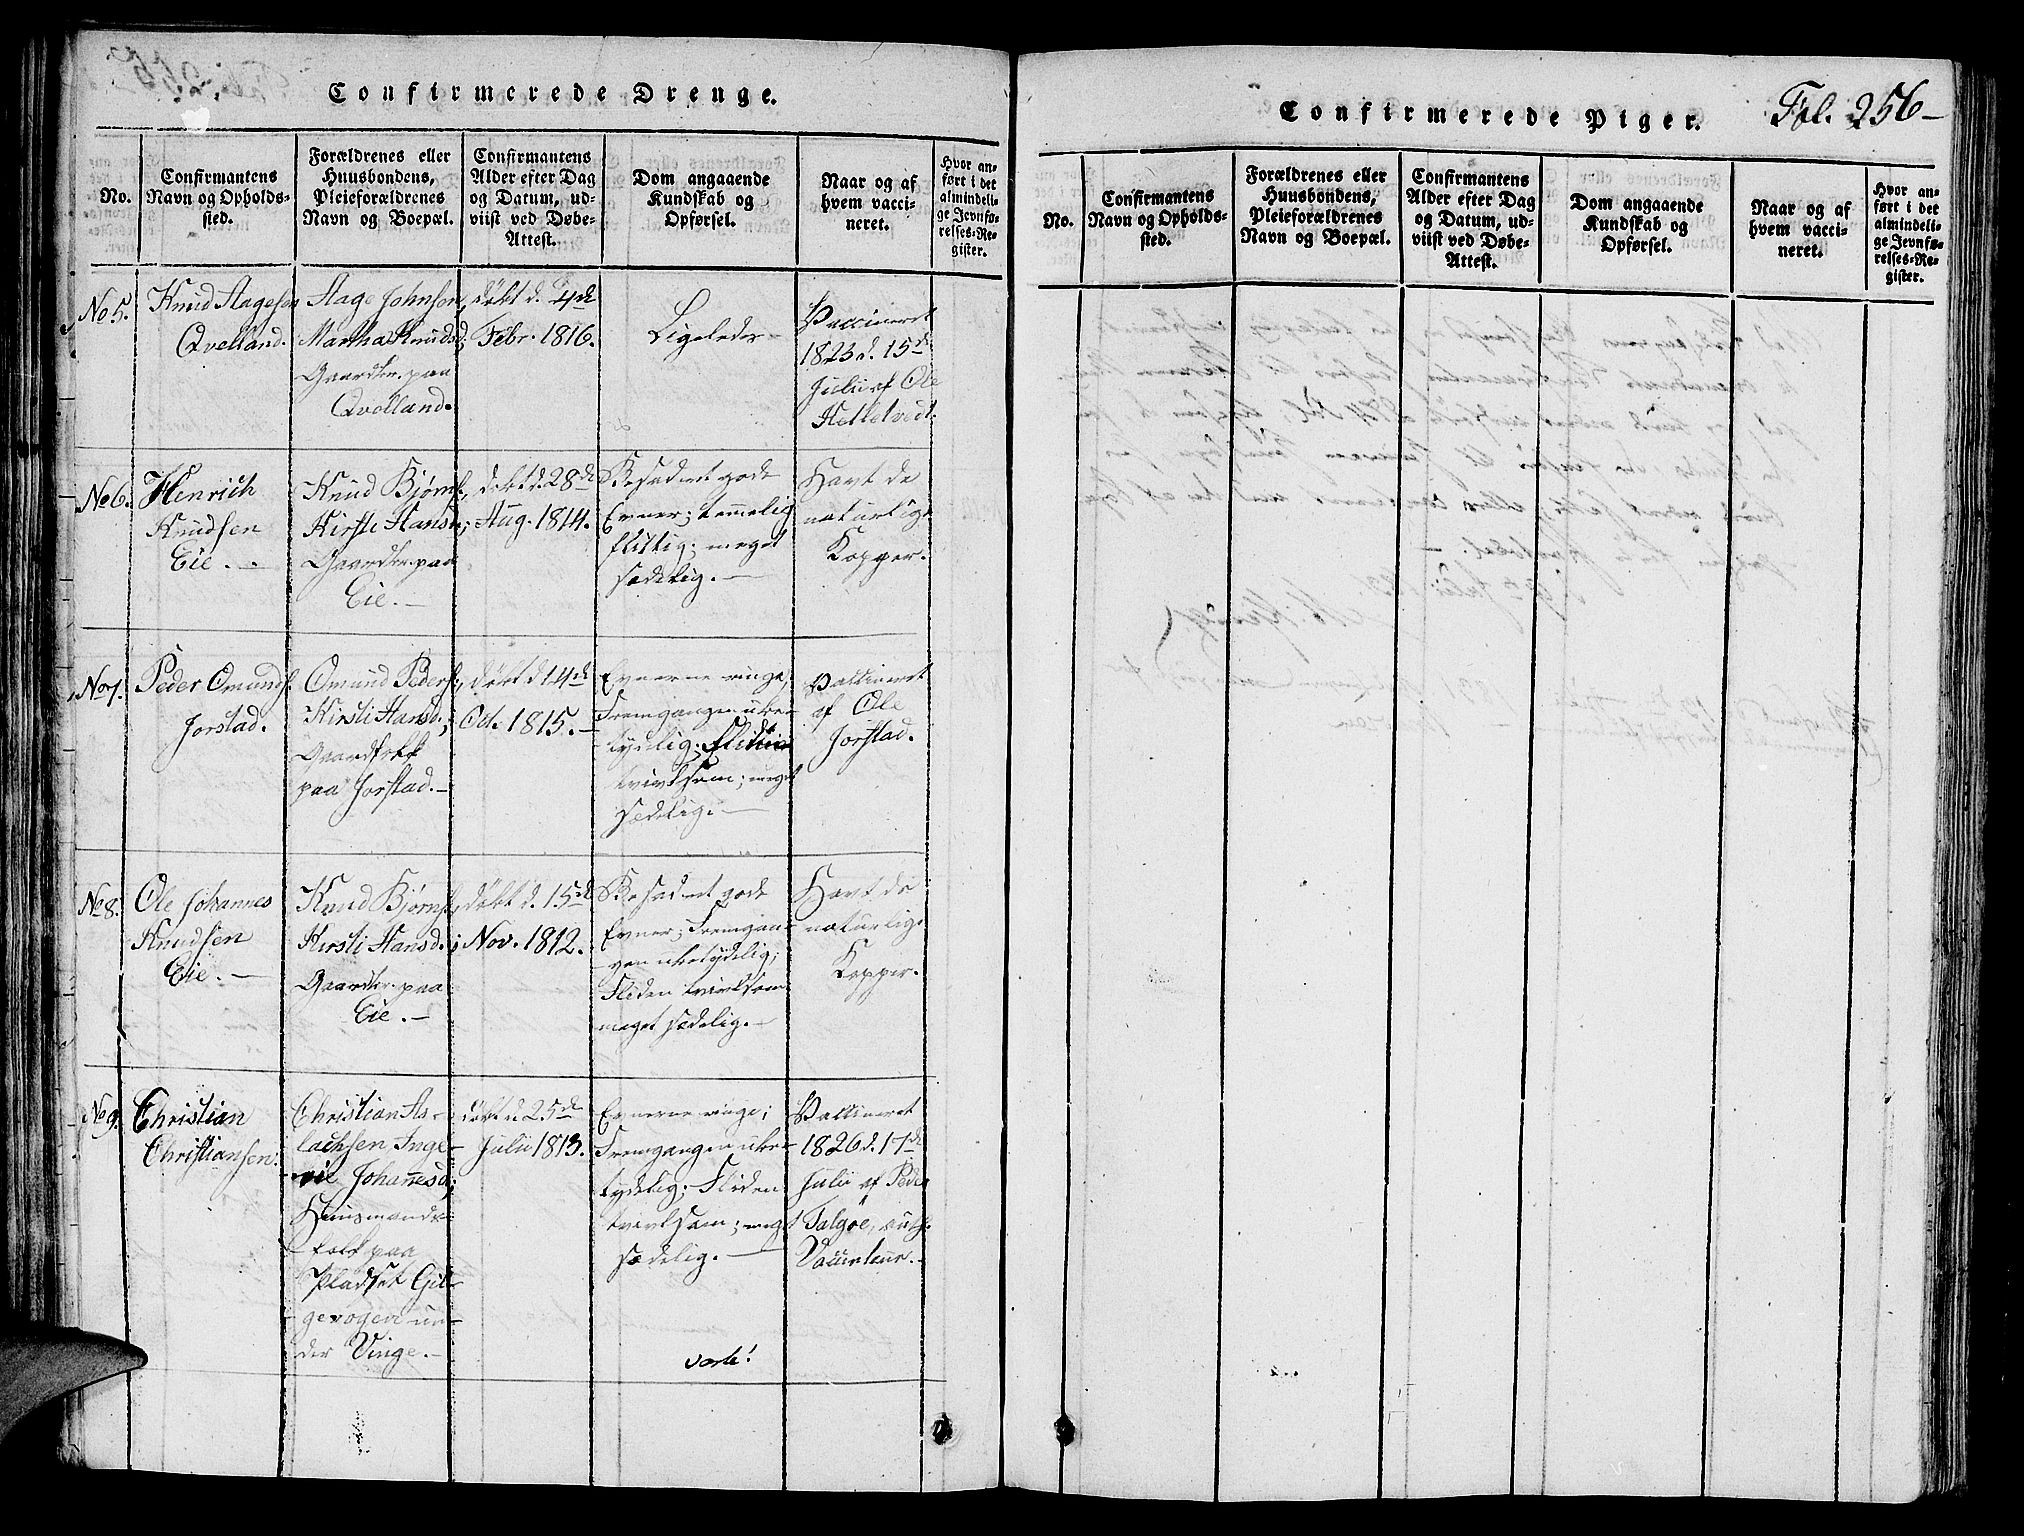 Confirmerede Drenge.
No.
Confirmantens
Navn og Opholds-
sted.
Forældrenes eller
Huusbondens,
Pleieforældrenes
Navn og Boepæl.
Confirmantens
Alder efter Dag
og Datum, ud-
viist ved Døbe-
Attest.
Dom angaaende
Kundskab og
Opførsel.
Naar og af
hvem vacci-
neret.
Hvor an-
ført i det
almindeli-
ge Jevnfø-
relses-Re-
gister.
No 5.
Knud Aagesen
Qvelland.
Aage Johnson,
Martha Knudsd;
Gaardfkr. paa
Qvelland.
døbt d. 4de
Febr. 1816.
Ligeledes
Vaccineret
1823 d. 15de
Julii af Ole
Helletvedt.
No 6.
Henrich
Knudsen
Eie. -
Knud Bjørns.,
Kirsti Hansd;
Gaardfkr. paa
Eie. -
døbt d. 28de
Aug. 1814.
Besad. et gode
Evner; temelig
flittig; meget
sædelig. -
Havt de
naturlige
Kopper.
No 7.
Peder Omunds.
Jorstad.
Omund Peders.,
Kirsti Hansd.;
Gaardfolk
paa Jorstad. -
døbt d 14de
Oct. 1815. -
Evnerne ringe,
Fremgangen ube-
tydelig; Fliden
tvivlsom; meget
sædelig. -
Vaccineret
af Ole
Jorstad.
No 8.
Ole Johannes
Knudsen
Eie. -
Knud Bjørns.,
Kirsti Hansd.;
Gaardfkr. paa
Eie. -
døbt d. 15de
Nov. 1812.
Besad et gode
Evner; Fremgan-
gen ubetydelig;
Fliden tvivlsom
meget sædelig. -
Havt de
naturlige
Kopper.
No 9.
Christian
Christiansen.
Christian As-
lachsen, Inge-
Johannesd;
Huusmands-
folk paa
Pladset Gil-
gevogen un-
der Vinge. -
døbt d. 25de
Julii 1813.
Evnerne ringe;
Fremgangen ube-
tydelig; Fliden
tvivlsom; meget
sædelig. -
Vaccineret
1826 d. 17de
Julii af Peder
Talgøe, auth.
Vaccinateur. -
verte!
Confirmerede Piger.
Fol. 256-
No.
Confirmantens
Navn og Opholds-
sted.
Forældrenes eller
Huusbondens,
Pleieforældrenes
Navn og Boepæl.
Confirmantens
Alder efter Dag
og Datum, ud-
viist ved Døbe-
Attest.
Dom angaaende
Kundskab og
Opførsel.
Naar og af
hvem vacci-
neret.
Hvor an-
ført i det
almindeli-
ge Jevnfø-
relses-Re-
gister.